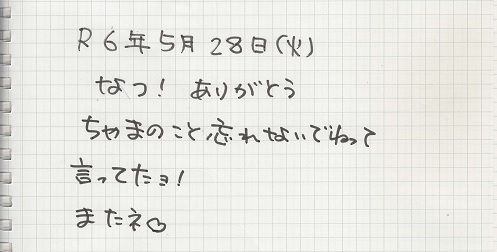 R6年5月28日(火)
なつ! ありがとう
ちゃまのこと忘れないでねって
言ってたョ!
またネ♡